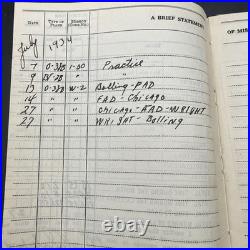 DATE TYPE OF PLANE MISSION A BRIEF STATEMENT OF MIS
July 1934
7 O-38B 1-00 Practice
9 " "
13 O-38B W-2 Bolling - PAD
14 " " PAD - Chicago
27 " " Chicago - FAD - WRIGHT
27 " " WRIGHT - Bolling